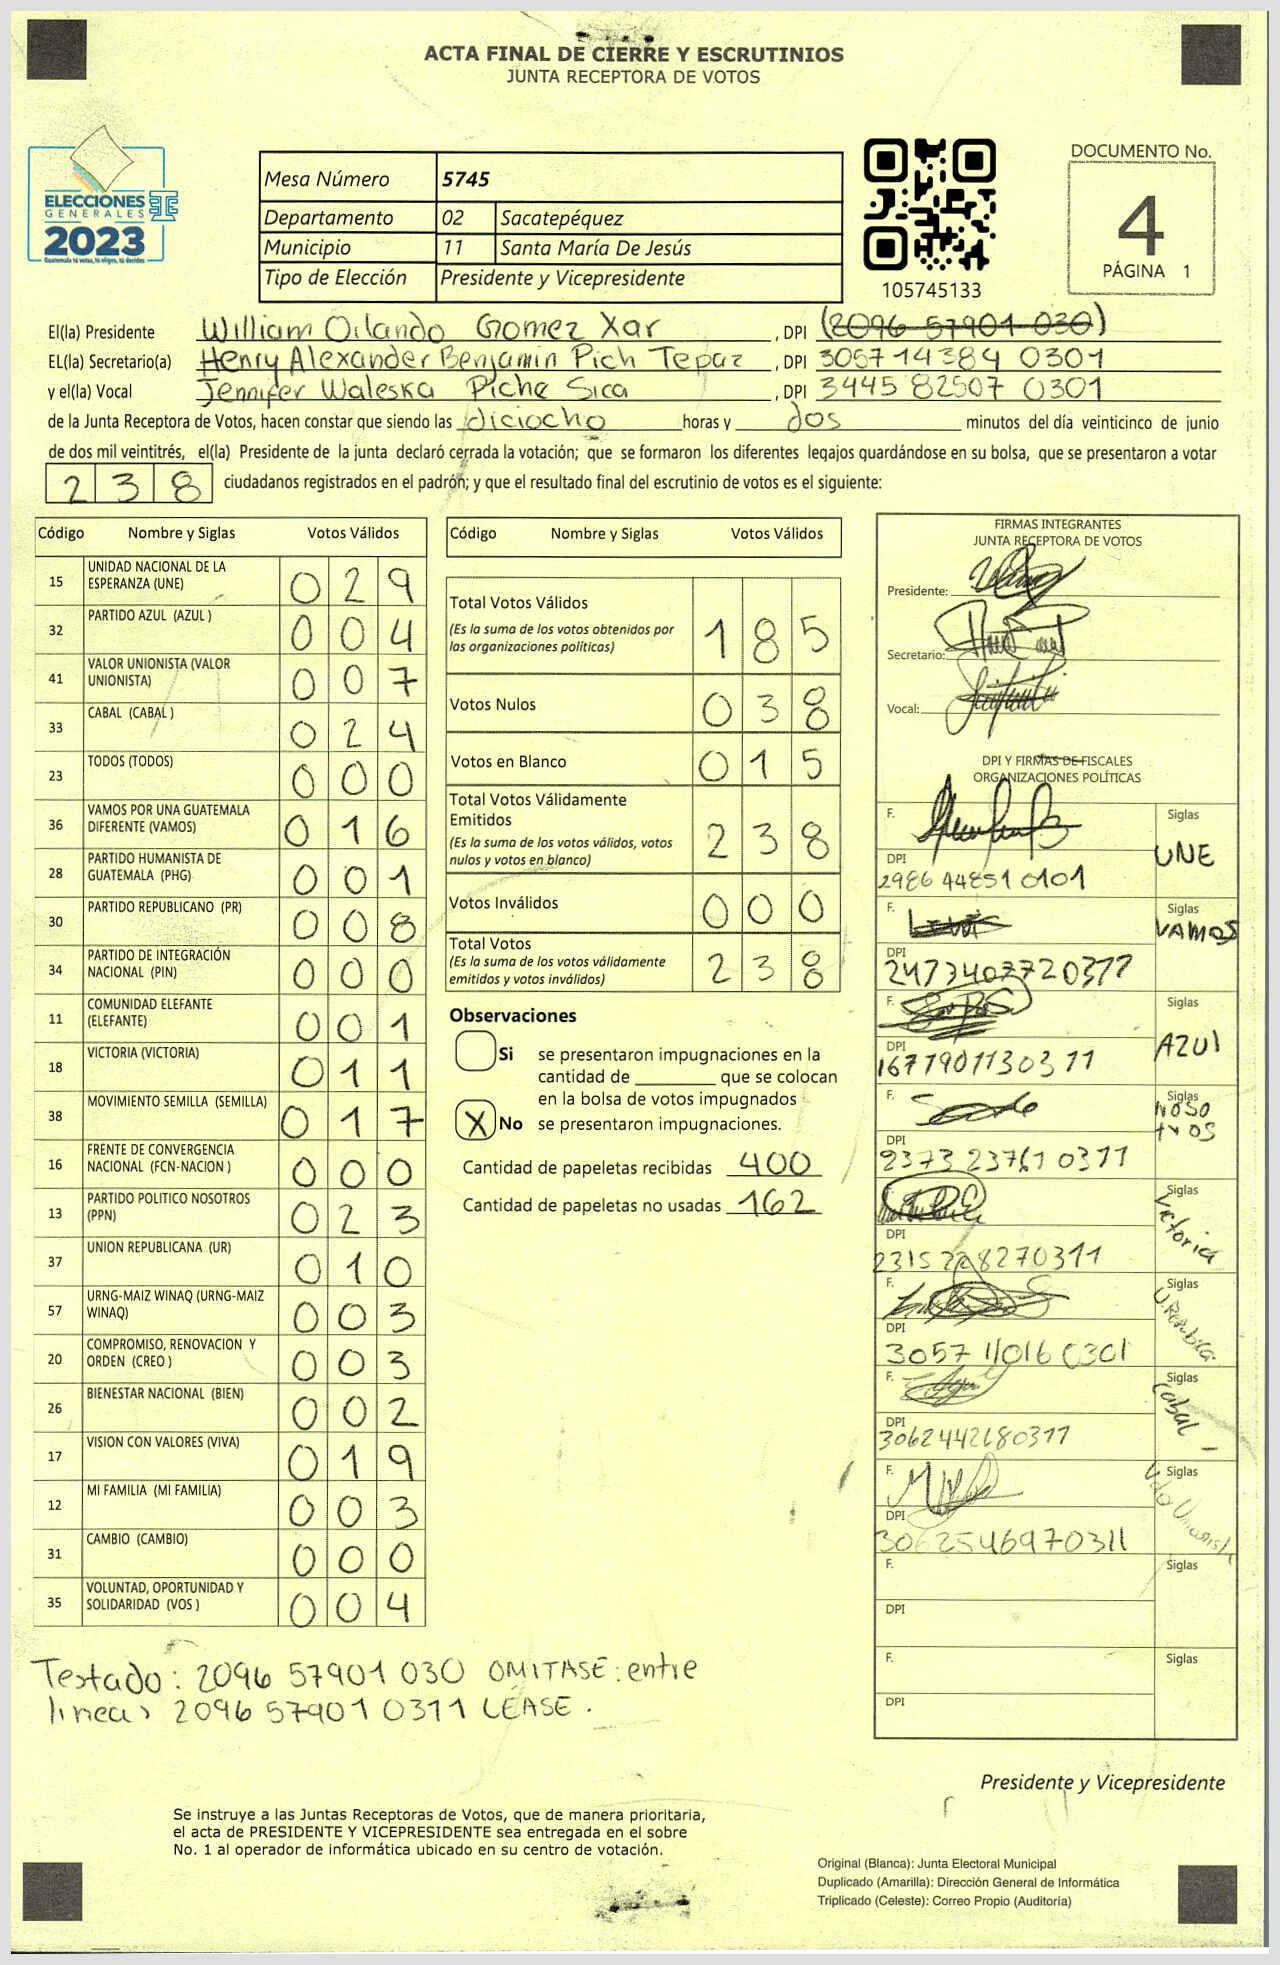 ACTA FINAL DE CIERRE Y ESCRUTINIOS
JUNTA RECEPTORA DE VOTOS
ELECCIONES
GENERALES
2023
Guatemala tú votas, tú eliges, tú decides
Mesa Número 5745
Departamento 02 Sacatepéquez
Municipio 11 Santa María De Jesús
Tipo de Elección Presidente y Vicepresidente
105745133
DOCUMENTO No.
4
PÁGINA 1
El(la) Presidente William Orlando Gomez Xar , DPI (2096 57901 030)
EL(la) Secretario(a) Henry Alexander Benjamin Pich Tepaz , DPI 3057 14384 0301
y el(la) Vocal Jennifer Waleska Piche Sica , DPI 3445 82507 0301
de la Junta Receptora de Votos, hacen constar que siendo las diciocho horas y dos minutos del día veinticinco de junio
de dos mil veintitrés, el(la) Presidente de la junta declaró cerrada la votación; que se formaron los diferentes legajos guardándose en su bolsa, que se presentaron a votar
238 ciudadanos registrados en el padrón; y que el resultado final del escrutinio de votos es el siguiente:
Código Nombre y Siglas Votos Válidos
15 UNIDAD NACIONAL DE LA ESPERANZA (UNE) 029
32 PARTIDO AZUL (AZUL ) 004
41 VALOR UNIONISTA (VALOR UNIONISTA) 007
33 CABAL (CABAL ) 024
23 TODOS (TODOS) 000
36 VAMOS POR UNA GUATEMALA DIFERENTE (VAMOS) 016
28 PARTIDO HUMANISTA DE GUATEMALA (PHG) 001
30 PARTIDO REPUBLICANO (PR) 008
34 PARTIDO DE INTEGRACIÓN NACIONAL (PIN) 000
11 COMUNIDAD ELEFANTE (ELEFANTE) 001
18 VICTORIA (VICTORIA) 011
38 MOVIMIENTO SEMILLA (SEMILLA) 017
16 FRENTE DE CONVERGENCIA NACIONAL (FCN-NACION ) 000
13 PARTIDO POLITICO NOSOTROS (PPN) 023
37 UNION REPUBLICANA (UR) 010
57 URNG-MAIZ WINAQ (URNG-MAIZ WINAQ) 003
20 COMPROMISO, RENOVACION Y ORDEN (CREO ) 003
26 BIENESTAR NACIONAL (BIEN) 002
17 VISION CON VALORES (VIVA) 019
12 MI FAMILIA (MI FAMILIA) 003
31 CAMBIO (CAMBIO) 000
35 VOLUNTAD, OPORTUNIDAD Y SOLIDARIDAD (VOS ) 004
Testado: 2096 57901 030 OMITASE: entre
lineas 2096 57901 0311 LEASE.
Código Nombre y Siglas Votos Válidos
Total Votos Válidos 185
(Es la suma de los votos obtenidos por
las organizaciones políticas)
Votos Nulos 038
Votos en Blanco 015
Total Votos Válidamente
Emitidos 238
(Es la suma de los votos válidos, votos
nulos y votos en blanco)
Votos Inválidos 000
Total Votos 238
(Es la suma de los votos válidamente
emitidos y votos inválidos)
Observaciones
Si se presentaron impugnaciones en la
cantidad de ________ que se colocan
en la bolsa de votos impugnados
X No se presentaron impugnaciones.
Cantidad de papeletas recibidas 400
Cantidad de papeletas no usadas 162
FIRMAS INTEGRANTES
JUNTA RECEPTORA DE VOTOS
Presidente:
Secretario:
Vocal:
DPI Y FIRMAS DE FISCALES
ORGANIZACIONES POLÍTICAS
F. Siglas UNE
DPI 2986 44851 0101
F. Siglas VAMOS
DPI 2473407720311
F. Siglas AZUl
DPI 1677901130311
F. Siglas NOSOtros
DPI 2373 23761 0311
F. Siglas Victoria
DPI 2315228270311
F. Siglas
DPI 3057 11016 0301
F. Siglas Cabal
DPI 3062442680311
F. Siglas
DPI 3062546970311
F. Siglas
DPI
F. Siglas
DPI
Presidente y Vicepresidente
Se instruye a las Juntas Receptoras de Votos, que de manera prioritaria,
el acta de PRESIDENTE Y VICEPRESIDENTE sea entregada en el sobre
No. 1 al operador de informática ubicado en su centro de votación.
Original (Blanca): Junta Electoral Municipal
Duplicado (Amarilla): Dirección General de Informática
Triplicado (Celeste): Correo Propio (Auditoría)